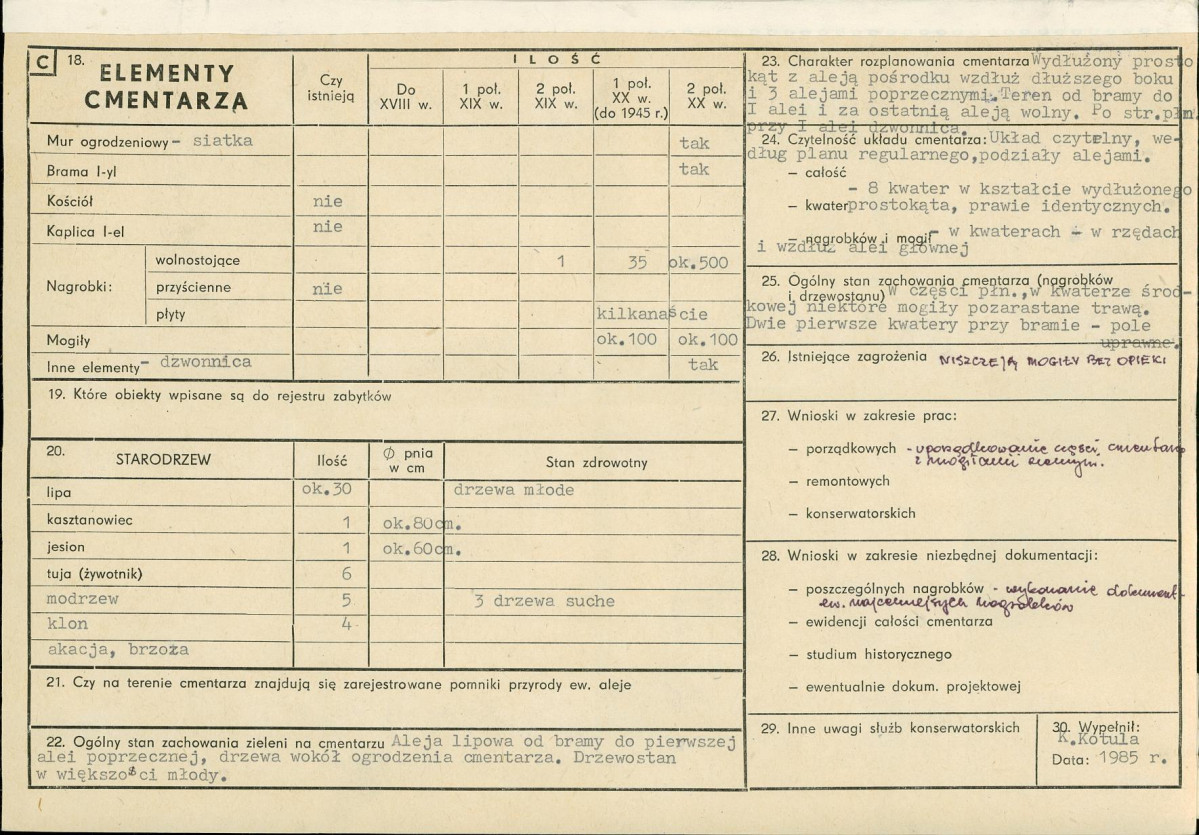 C 18. ELEMENTY
CMENTARZA
Czy
istnieją
ILOŚĆ
Do
XVIII w.
1 poł.
XIX w.
2 poł.
XIX w.
1 poł.
XX w.
(do 1945 r.)
2 poł.
XX w.
Mur ogrodzeniowy - siatka tak
Brama I-yl tak
Kościół nie
Kaplica I-el nie
Nagrobki:
wolnostojące 1 35 ok.500
przyścienne nie
płyty kilkanaście
Mogiły ok.100 ok.100
Inne elementy - dzwonnica tak
19. Które obiekty wpisane są do rejestru zabytków
20. STARODRZEW Ilość Ø pnia
w cm Stan zdrowotny
lipa ok.30 drzewa młode
kasztanowiec 1 ok.80cm.
jesion 1 ok.60cm.
tuja (żywotnik) 6
modrzew 5 3 drzewa suche
klon 4
akacja, brzoza
21. Czy na terenie cmentarza znajdują się zarejestrowane pomniki przyrody ew. aleje
22. Ogólny stan zachowania zieleni na cmentarzu Aleja lipowa od bramy do pierwszej
alei poprzecznej, drzewa wokół ogrodzenia cmentarza. Drzewostan
w większości młody.
23. Charakter rozplanowania cmentarza Wydłużony prosto
kąt z aleją pośrodku wzdłuż dłuższego boku
i 3 alejami poprzecznymi. Teren od bramy do
I alei i za ostatnią aleją wolny. Po str.płn.
przy I alei dzwonnica.
24. Czytelność układu cmentarza: Układ czytelny, we-
dług planu regularnego,podziały alejami.
– całość
- 8 kwater w kształcie wydłużonego
– kwater prostokąta, prawie identycznych.
– nagrobków i mogił - w kwaterach - w rzędach
i wzdłuż alei głównej
25. Ogólny stan zachowania cmentarza (nagrobków
i drzewostanu) W części płn.,w kwaterze środ-
kowej niektóre mogiły pozarastane trawą.
Dwie pierwsze kwatery przy bramie - pole
uprawne.
26. Istniejące zagrożenia NISZCZEJĄ MOGIŁY BEZ OPIEKI
27. Wnioski w zakresie prac:
– porządkowych - uporządkowanie części cmentarza
z mogiłami ziemnym.
– remontowych
– konserwatorskich
28. Wnioski w zakresie niezbędnej dokumentacji:
– poszczególnych nagrobków - wykonanie dokument-
ew. najcenniejszych nagrobków
– ewidencji całości cmentarza
– studium historycznego
– ewentualnie dokum. projektowej
29. Inne uwagi służb konserwatorskich
30. Wypełnił:
K.Kotula
Data: 1985 r.